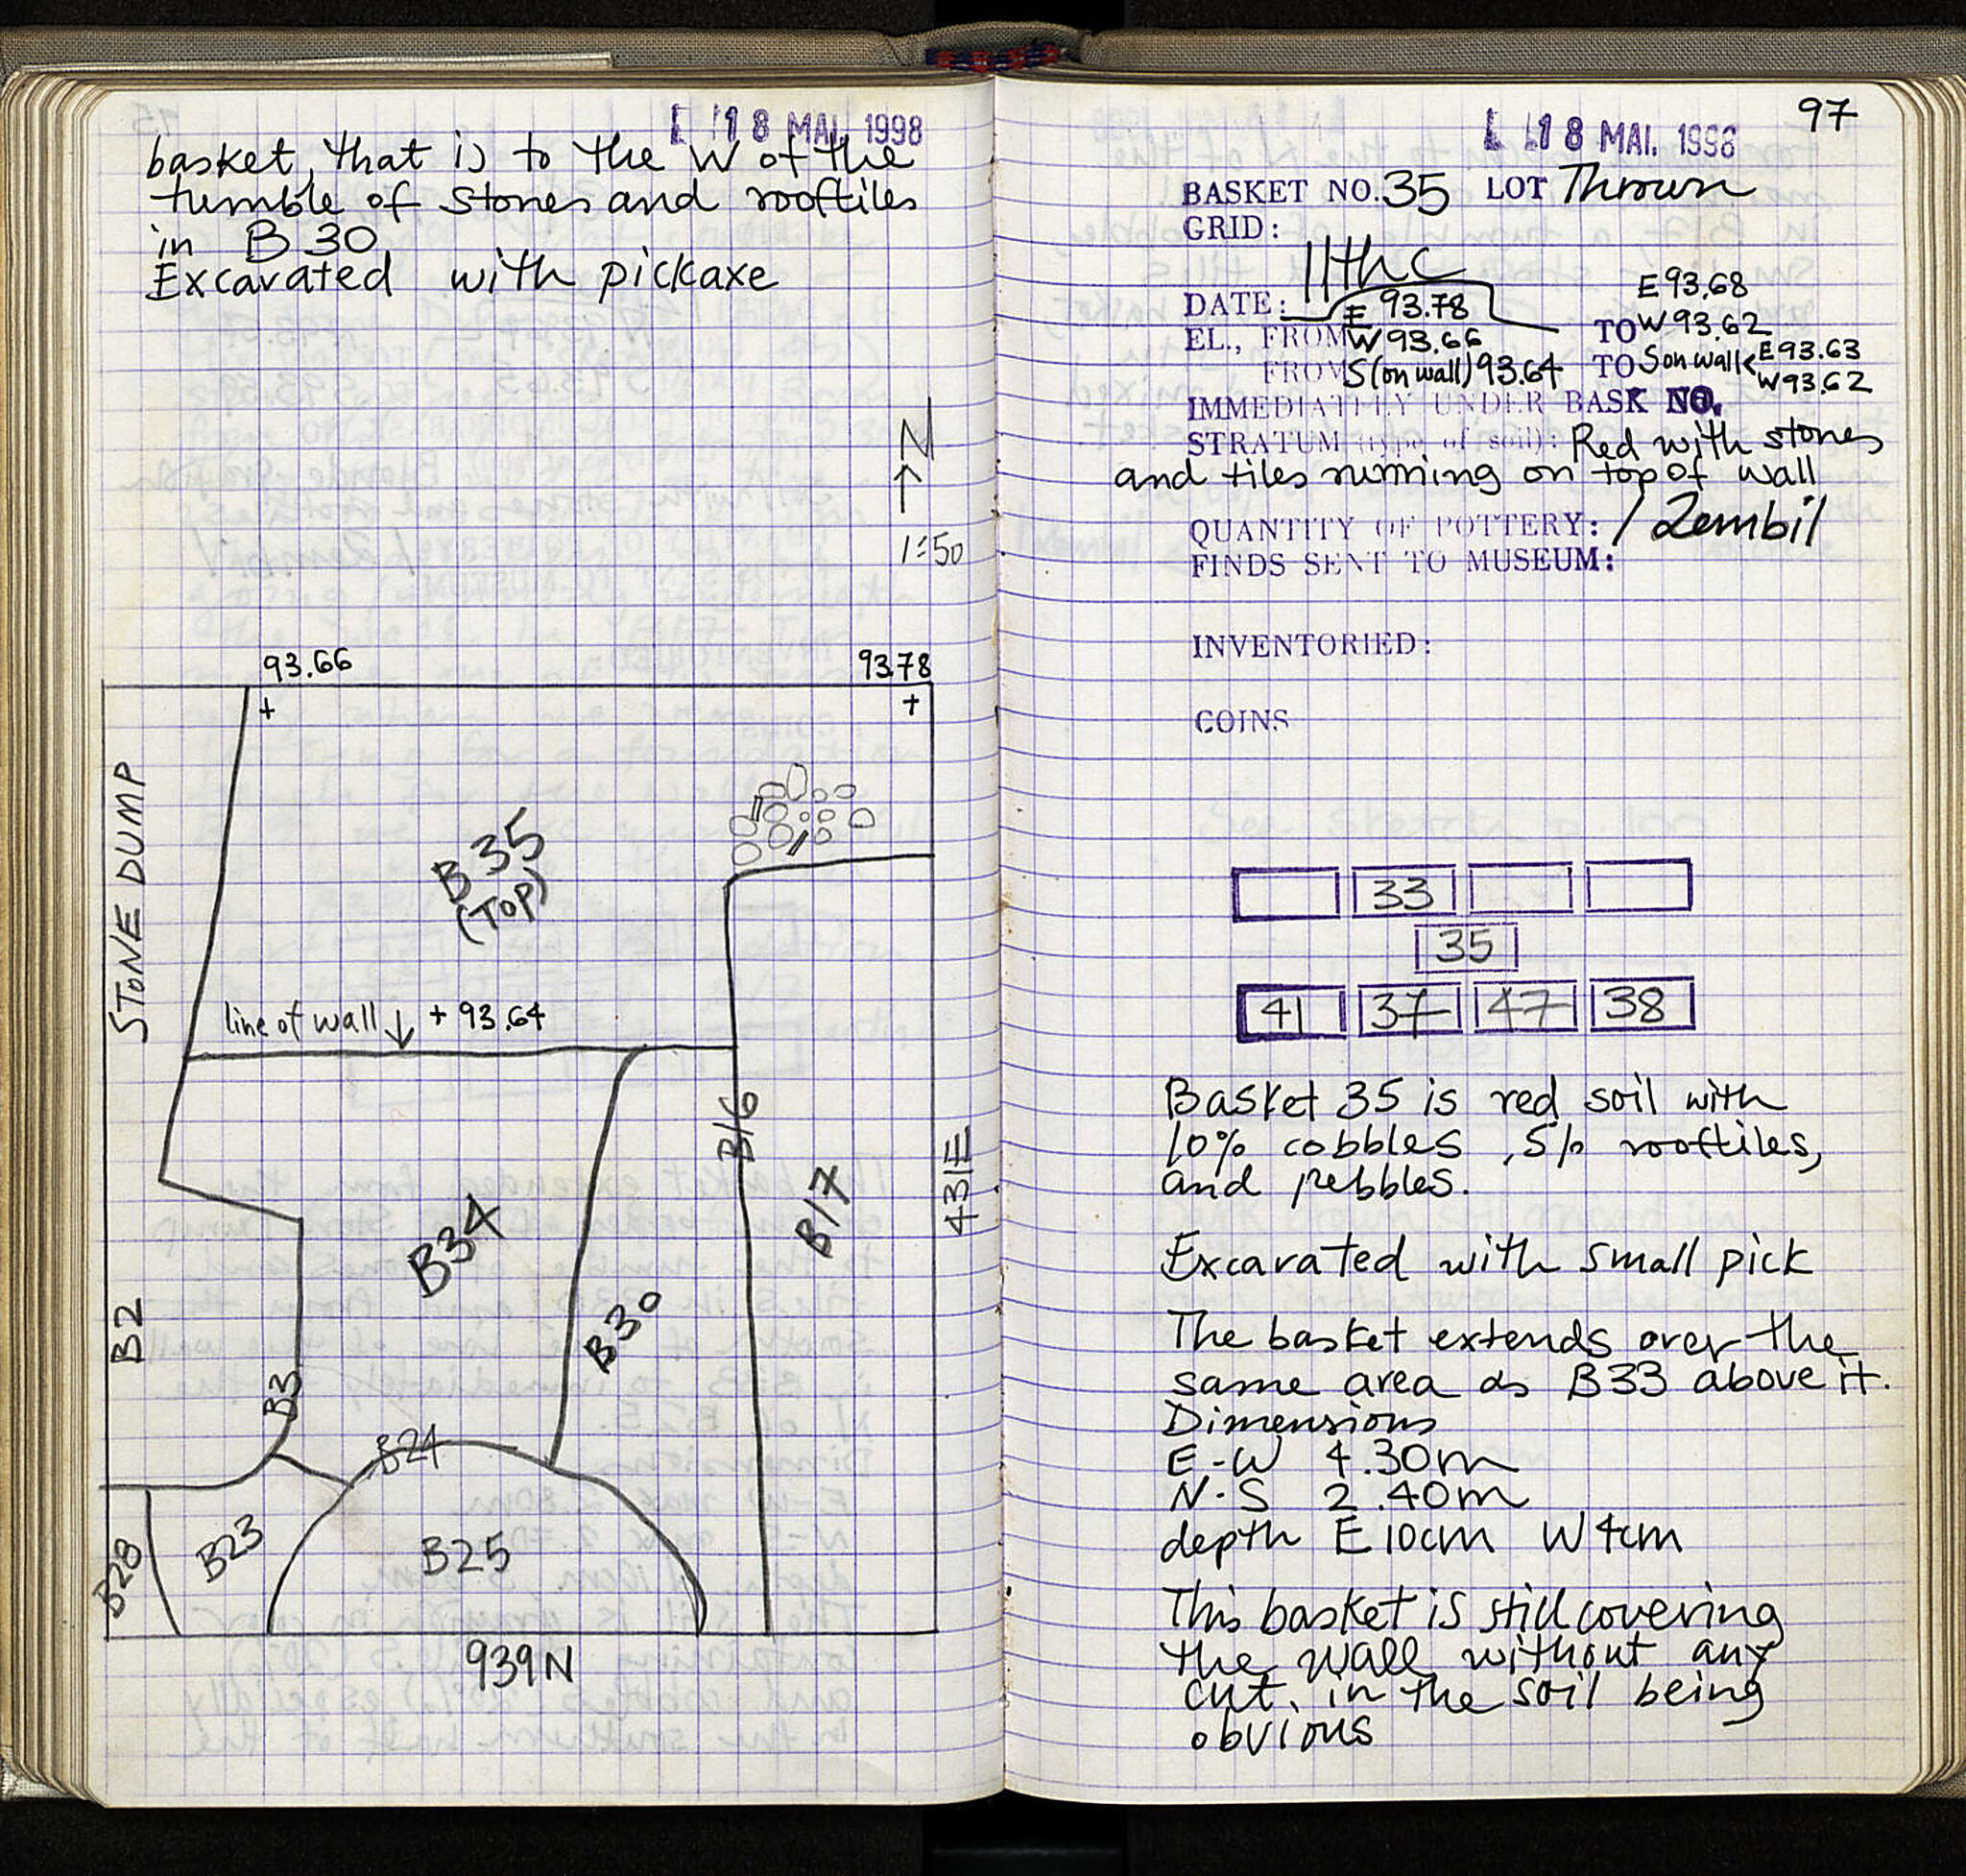 18 MAI 1998
basket, that is to the W of the
tumble of stones and rooftiles
in B 30
Excavated with pickaxe
N
1:50
93.66
93.78
+
+
STONE DUMP
B 35
(TOP)
line of wall ↓ + 93.64
B16
B17
431E
B34
B30
B2
B3
B24
B28
B23
B25
939N
97
18 MAI. 1998
BASKET NO. 35 LOT Thrown
GRID:
DATE: 11th C
E 93.78
E 93.68
EL., FROM W 93.66 TO W 93.62
FROM S (on wall) 93.64 TO S on wall < E 93.63
W 93.62
IMMEDIATELY UNDER BASK NO.
STRATUM (type of soil): Red with stones
and tiles running on top of wall
QUANTITY OF POTTERY: 1 Zembil
FINDS SENT TO MUSEUM:
INVENTORIED:
COINS
33
35
41 37 47 38
Basket 35 is red soil with
10% cobbles, 5% rooftiles,
and pebbles.
Excavated with small pick
The basket extends over the
same area as B33 above it.
Dimensions
E-W 4.30m
N-S 2.40m
depth E 10cm W 4cm
This basket is still covering
the wall without any
cut in the soil being
obvious